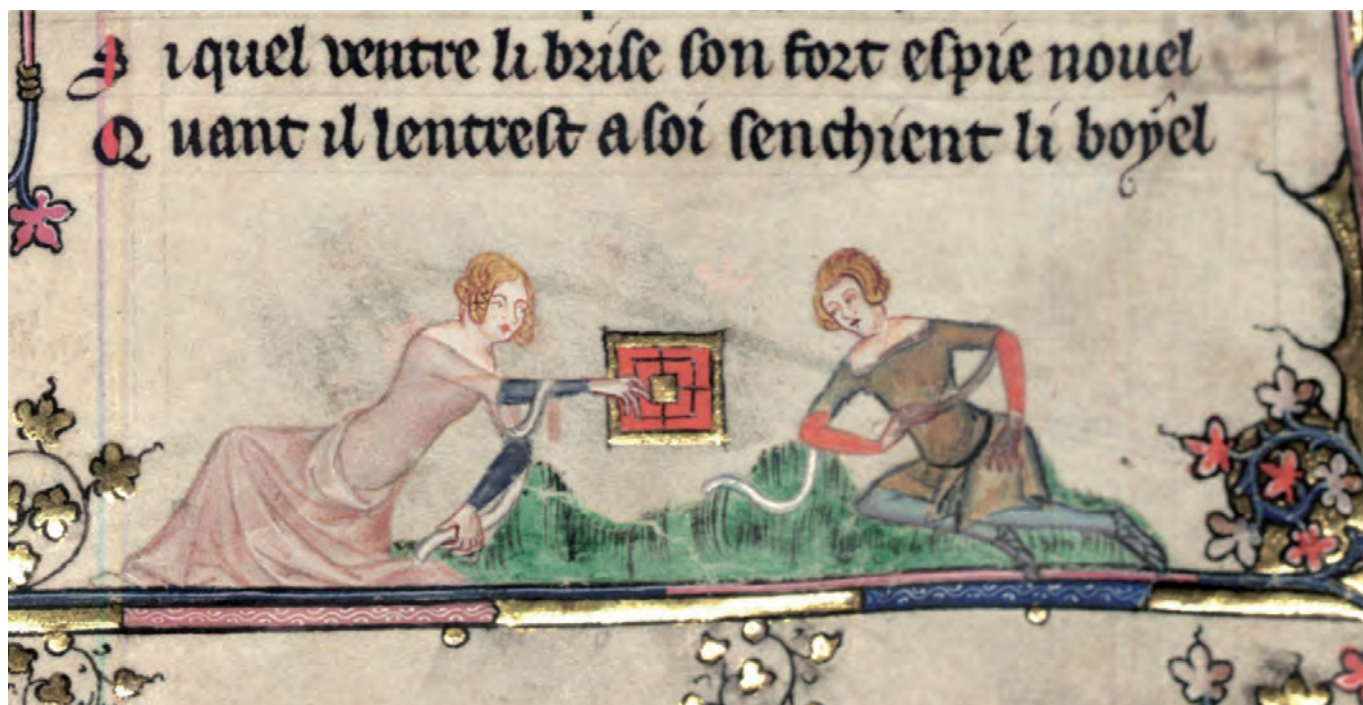 S i quel ventre li brise son fort espie nouel
Q uant il lentrest a soi senchient li boyel